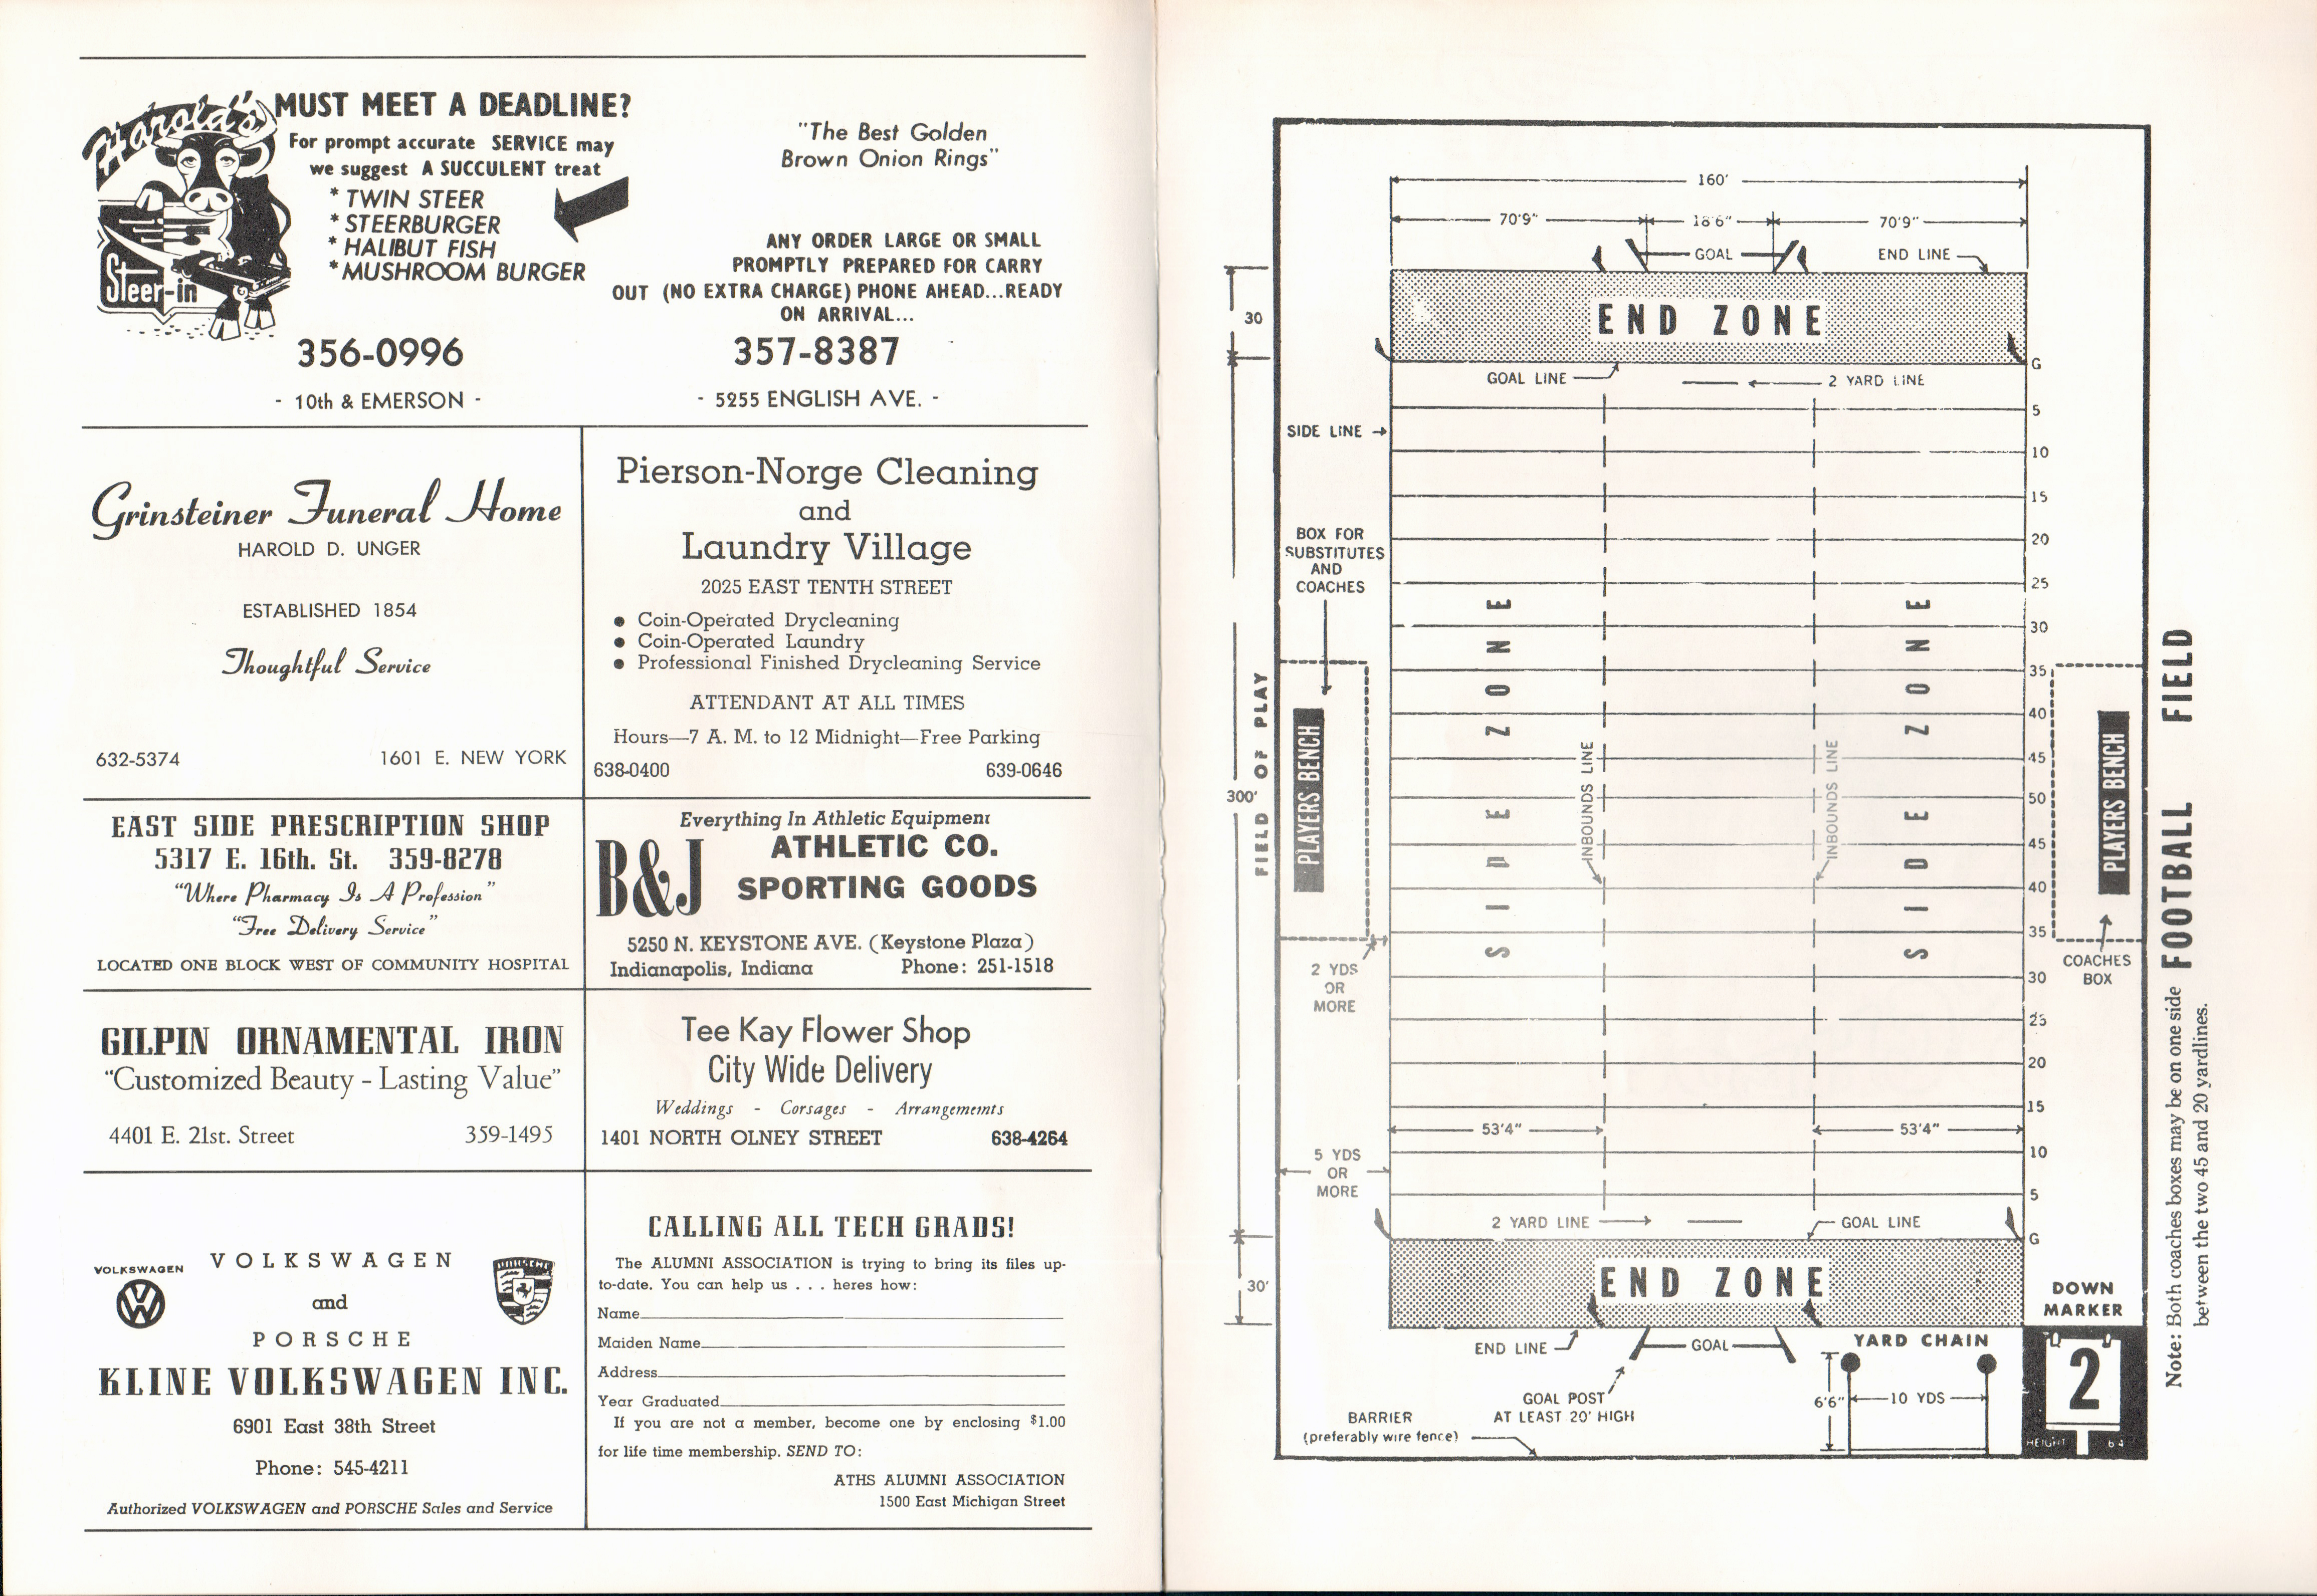 Harold's
Steer-in
MUST MEET A DEADLINE?
For prompt accurate SERVICE may
we suggest A SUCCULENT treat
* TWIN STEER
* STEERBURGER
* HALIBUT FISH
* MUSHROOM BURGER
356-0996
- 10th & EMERSON -
"The Best Golden
Brown Onion Rings"
ANY ORDER LARGE OR SMALL
PROMPTLY PREPARED FOR CARRY
OUT (NO EXTRA CHARGE) PHONE AHEAD...READY
ON ARRIVAL...
357-8387
- 5255 ENGLISH AVE. -
Grinsteiner Funeral Home
HAROLD D. UNGER
ESTABLISHED 1854
Thoughtful Service
632-5374 1601 E. NEW YORK
Pierson-Norge Cleaning
and
Laundry Village
2025 EAST TENTH STREET
● Coin-Operated Drycleaning
● Coin-Operated Laundry
● Professional Finished Drycleaning Service
ATTENDANT AT ALL TIMES
Hours—7 A. M. to 12 Midnight—Free Parking
638-0400 639-0646
EAST SIDE PRESCRIPTION SHOP
5317 E. 16th. St. 359-8278
"Where Pharmacy Is A Profession"
"Free Delivery Service"
LOCATED ONE BLOCK WEST OF COMMUNITY HOSPITAL
Everything In Athletic Equipment
B&J
ATHLETIC CO.
SPORTING GOODS
5250 N. KEYSTONE AVE. (Keystone Plaza)
Indianapolis, Indiana Phone: 251-1518
GILPIN ORNAMENTAL IRON
"Customized Beauty - Lasting Value"
4401 E. 21st. Street 359-1495
Tee Kay Flower Shop
City Wide Delivery
Weddings - Corsages - Arrangements
1401 NORTH OLNEY STREET 638-4264
VOLKSWAGEN
VOLKSWAGEN
and
PORSCHE
PORSCHE
KLINE VOLKSWAGEN INC.
6901 East 38th Street
Phone: 545-4211
Authorized VOLKSWAGEN and PORSCHE Sales and Service
CALLING ALL TECH GRADS!
The ALUMNI ASSOCIATION is trying to bring its files up-
to-date. You can help us . . . heres how:
Name
Maiden Name
Address
Year Graduated
If you are not a member, become one by enclosing $1.00
for life time membership. SEND TO:
ATHS ALUMNI ASSOCIATION
1500 East Michigan Street
160'
70'9" 18'6" 70'9"
GOAL
END LINE
30
END ZONE
G
GOAL LINE
2 YARD LINE
5
SIDE LINE
10
15
BOX FOR
SUBSTITUTES
AND
COACHES
20
25
30
35
40
45
50
45
40
35
30
25
20
15
10
5
G
SIDE ZONE
SIDE ZONE
INBOUNDS LINE
INBOUNDS LINE
PLAYERS BENCH
PLAYERS BENCH
300'
FIELD OF PLAY
2 YDS
OR
MORE
COACHES
BOX
53'4" 53'4"
5 YDS
OR
MORE
2 YARD LINE
GOAL LINE
30'
END ZONE
END LINE
GOAL
GOAL POST
AT LEAST 20' HIGH
BARRIER
(preferably wire fence)
YARD CHAIN
6'6" 10 YDS
DOWN
MARKER
2
HEIGHT 6 4
FOOTBALL FIELD
Note: Both coaches boxes may be on one side
between the two 45 and 20 yardlines.